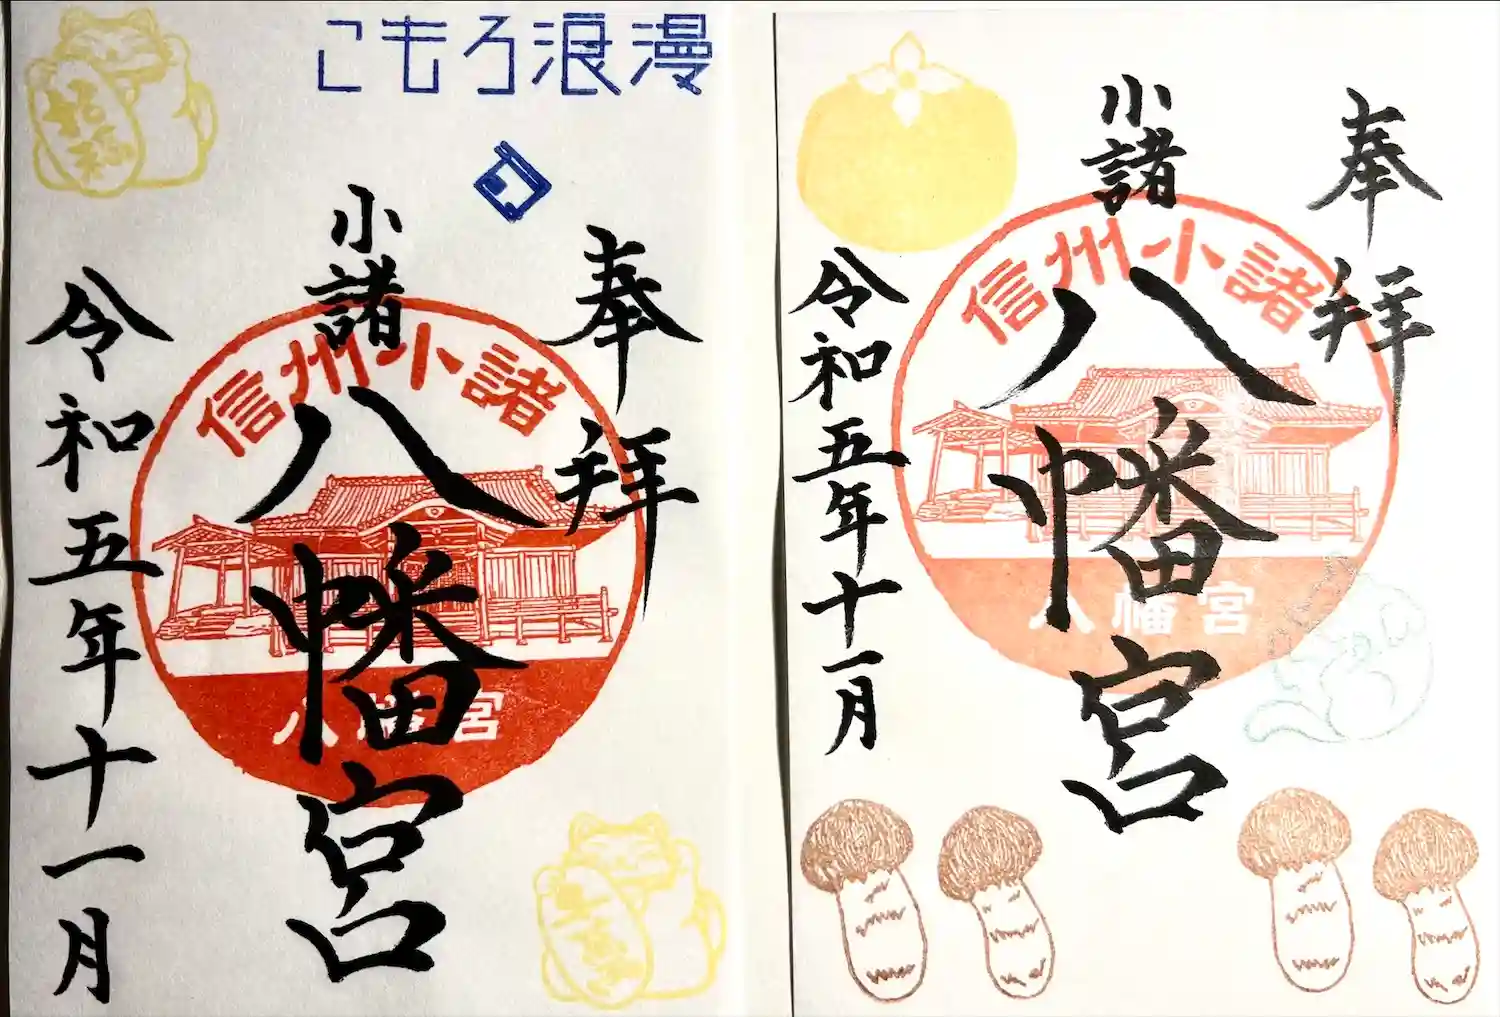 こもろ浪漫
招福
奉拝
小諸
八幡宮
信州小諸
八幡宮
令和五年十一月
奉拝
小諸
八幡宮
信州小諸
八幡宮
令和五年十一月